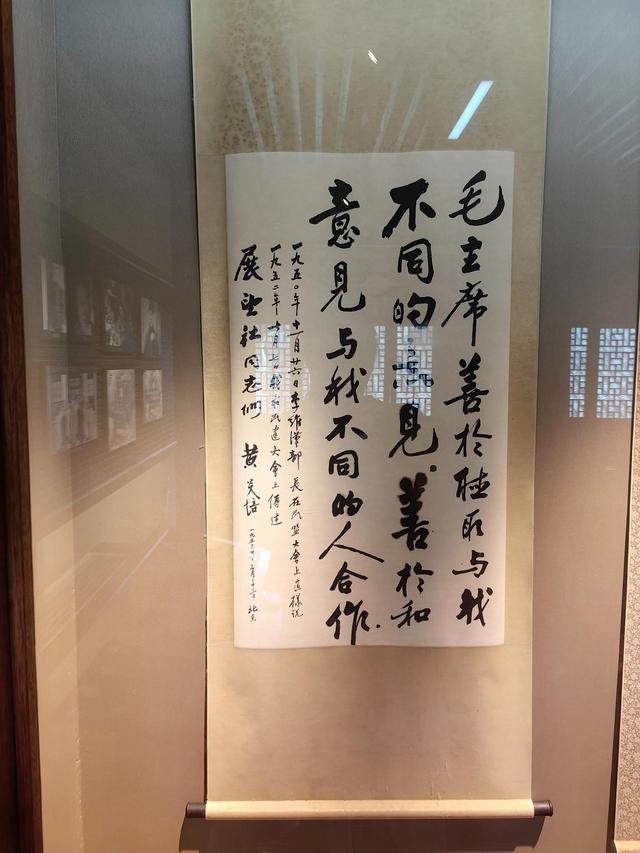 毛主席善於聽取与我
不同的意見善於和
意見与我不同的人合作.
一九五〇年十一月廿六日李維漢部長在民盟大會上這樣説
一九五二年 月七日我和民建大會上傳達
展望社同志們 黄炎培
一九五 年 月十三日 北京